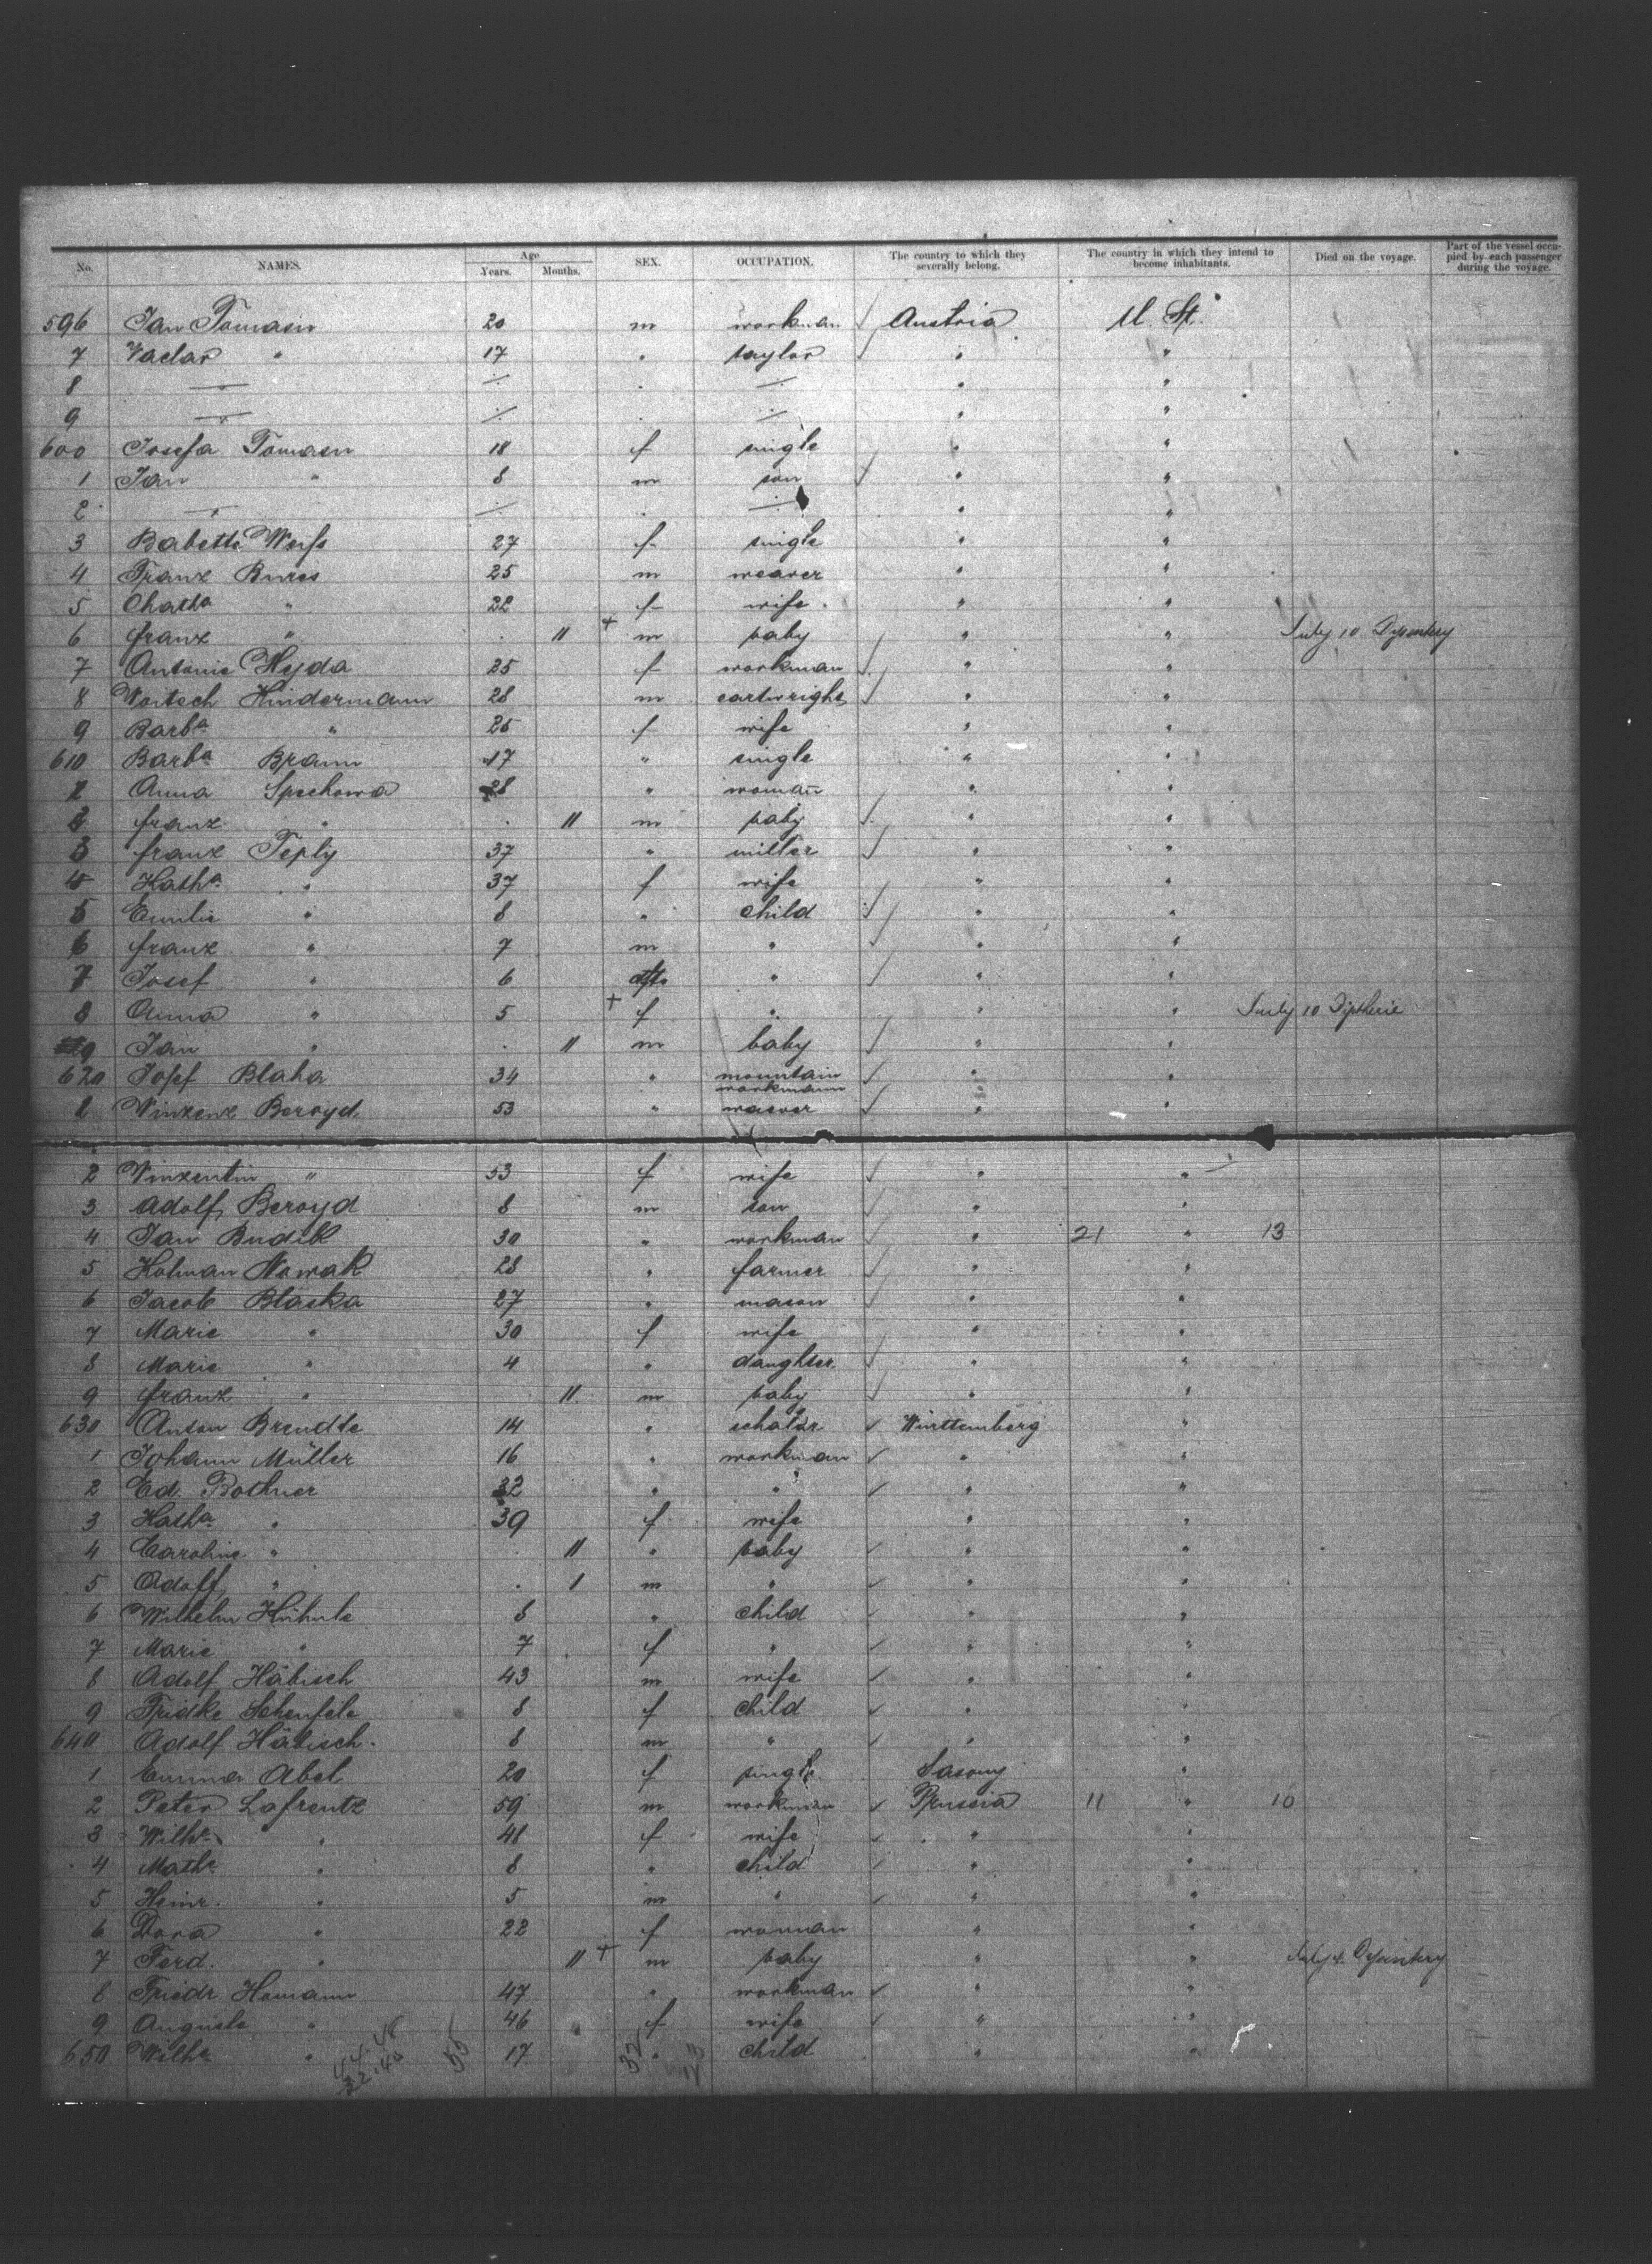 No. NAMES. Age Years. Months. SEX. OCCUPATION. The country to which they severally belong. The country in which they intend to become inhabitants. Died on the voyage. Part of the vessel occupied by each passenger during the voyage.
596 Jan Tomasin 20 m workman Austria U. St.
7 Vaclav " 17 " taylor " "
8 — " — ÷ . ÷ " "
9 — " — ÷ . ÷ " "
600 Josefa Tomasn 18 f single " "
1 Jan " 8 m son " "
2 — " — ÷ . ÷ " "
3 Babette Weiss 27 f single " "
4 Franz Bures 25 m weaver " "
5 Chatha " 22 f wife " "
6 franz " . 11 + m baby " " July 10 Dysentery
7 Antonie Hyda 25 f workman " "
8 Woitech Hindermann 28 m cartwright " "
9 Barba " 25 f wife " "
610 Barba Braun 17 " single " "
1 Anna Spechowa 28 " woman " "
2 franz " . 11 m baby " "
3 franz Teply 37 " miller " "
4 Katha " 37 f wife " "
5 Emilie " 8 " child " "
6 franz " 7 m " " "
7 Josef " 6 " " "
8 Anna " 5 + f " " " July 10 Diptherie
9 Jan " . 11 m baby " "
620 Josef Blaha 34 " mountain workmann " "
1 Winzenz Beroyd 53 " waever " "
2 Winzentin " 53 f wife " "
3 Adolf Beroyd 8 m son " "
4 Jan Budil 30 " workman " 21 " 13
5 Kolman Nowak 28 " farmer " "
6 Jacob Blaska 27 " mason " "
7 Marie " 30 f wife " "
8 Marie " 4 " daughter " "
9 franz " 11 m baby " "
630 Anton Brendle 14 " scholar Württemberg "
1 Johann Müller 16 " workman " "
2 Ed. Bothner 32 " " " "
3 Katha " 39 f wife " "
4 Caroline " . 11 " baby " "
5 Adolf " . 1 m " " "
6 Wilhelm 8 " child " "
7 Marie " 7 f " " "
8 Adolf Häbisch 43 m wife " "
9 Fridke Scheufele 8 f child " "
640 Adolf Häbisch 8 m " " "
1 Emma Abel 20 f single Saxony "
2 Peter Lafrentz 59 m workman Prussia 11 " 10
3 Wilhe " 48 f wife " "
4 Mathe " 8 " child " "
5 Heinr. " 5 m " " "
6 Dora " 22 f woman " "
7 Ferd. " 11 + m baby " " July 4 Dysentery
8 Friedr Homann 47 " workman " "
9 Auguste " 46 f wife " "
650 Wilhe " 17 " child " "
55 32